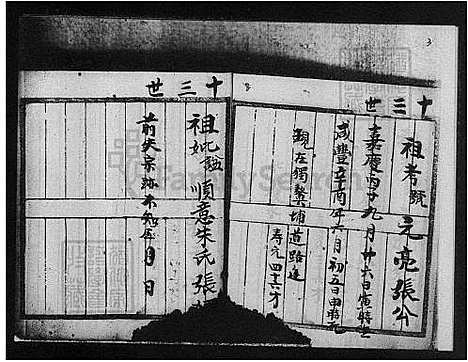 十三世
祖考號元亮張公
嘉慶丙子九月廿六日寅時生
咸豐辛酉年六月初五日申時死
現在獨鰲埔道路邊
壽元四十六才
十三世
祖妣謚順意朱氏張
前失宗跡不知年月日
3
FamilySearch